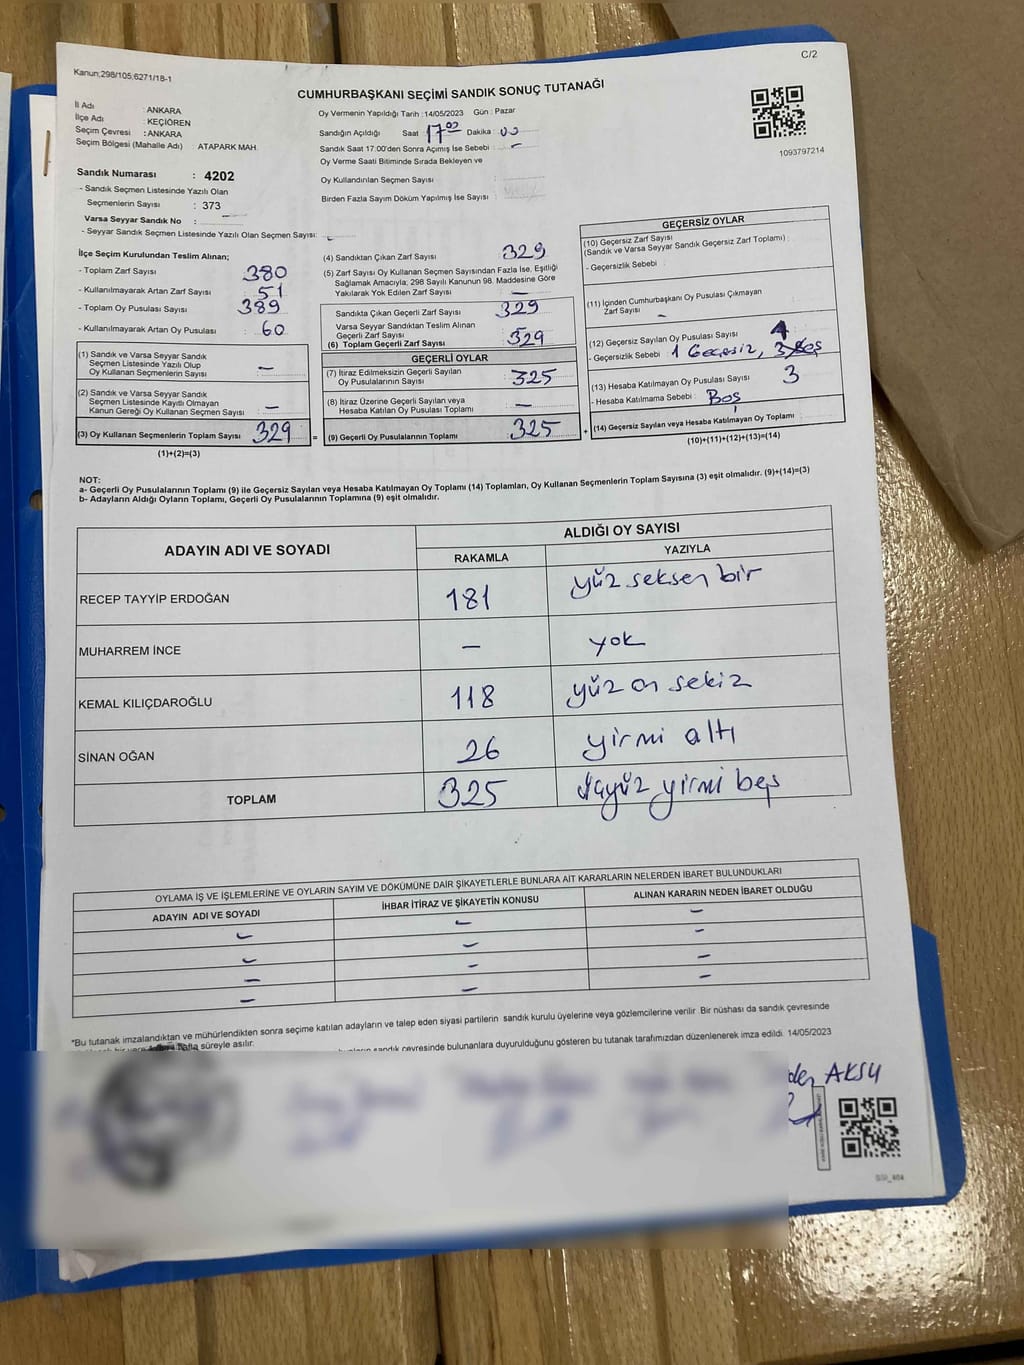 C/2
Kanun;298/105;6271/18-1
CUMHURBAŞKANI SEÇİMİ SANDIK SONUÇ TUTANAĞI
İl Adı : ANKARA
İlçe Adı : KEÇİÖREN
Seçim Çevresi : ANKARA
Seçim Bölgesi (Mahalle Adı) : ATAPARK MAH.
Sandık Numarası : 4202
- Sandık Seçmen Listesinde Yazılı Olan
Seçmenlerin Sayısı : 373
Varsa Seyyar Sandık No :
- Seyyar Sandık Seçmen Listesinde Yazılı Olan Seçmen Sayısı: -
Oy Vermenin Yapıldığı Tarih : 14/05/2023 Gün : Pazar
Sandığın Açıldığı Saat : 17 00 Dakika : 00
Sandık Saat 17:00'den Sonra Açımış İse Sebebi : -
Oy Verme Saati Bitiminde Sırada Bekleyen ve
Oy Kullandırılan Seçmen Sayısı :
Birden Fazla Sayım Döküm Yapılmış İse Sayısı :
1093797214
İlçe Seçim Kurulundan Teslim Alınan;
- Toplam Zarf Sayısı 380
- Kullanılmayarak Artan Zarf Sayısı 51
- Toplam Oy Pusulası 389
- Kullanılmayarak Artan Oy Pusulası 60
(1) Sandık ve Varsa Seyyar Sandık
Seçmen Listesinde Yazılı Olup
Oy Kullanan Seçmenlerin Sayısı -
(2) Sandık ve Varsa Seyyar Sandık
Seçmen Listesinde Kayıtlı Olmayan
Kanun Gereği Oy Kullanan Seçmen Sayısı -
(3) Oy Kullanan Seçmenlerin Toplam Sayısı 329
(1)+(2)=(3)
(4) Sandıktan Çıkan Zarf Sayısı 329
(5) Zarf Sayısı Oy Kullanan Seçmen Sayısından Fazla İse, Eşitliği
Sağlamak Amacıyla; 298 Sayılı Kanunun 98. Maddesine Göre
Yakılarak Yok Edilen Zarf Sayısı -
Sandıkta Çıkan Geçerli Zarf Sayısı 329
Varsa Seyyar Sandıktan Teslim Alınan
Geçerli Zarf Sayısı
(6) Toplam Geçerli Zarf Sayısı 329
GEÇERLİ OYLAR
(7) İtiraz Edilmeksizin Geçerli Sayılan
Oy Pusulalarının Sayısı 325
(8) İtiraz Üzerine Geçerli Sayılan veya
Hesaba Katılan Oy Pusulası Toplamı -
= (9) Geçerli Oy Pusulalarının Toplamı 325
GEÇERSİZ OYLAR
(10) Geçersiz Zarf Sayısı
(Sandık ve Varsa Seyyar Sandık Geçersiz Zarf Toplamı) :
- Geçersizlik Sebebi :
(11) İçinden Cumhurbaşkanı Oy Pusulası Çıkmayan
Zarf Sayısı -
(12) Geçersiz Sayılan Oy Pusulası Sayısı
- Geçersizlik Sebebi : 1 Geçersiz, 3 Boş
(13) Hesaba Katılmayan Oy Pusulası Sayısı 3
- Hesaba Katılmama Sebebi : Boş
+ (14) Geçersiz Sayılan veya Hesaba Katılmayan Oy Toplamı
(10)+(11)+(12)+(13)=(14)
NOT:
a- Geçerli Oy Pusulalarının Toplamı (9) ile Geçersiz Sayılan veya Hesaba Katılmayan Oy Toplamı (14) Toplamları, Oy Kullanan Seçmenlerin Toplam Sayısına (3) eşit olmalıdır. (9)+(14)=(3)
b- Adayların Aldığı Oyların Toplamı, Geçerli Oy Pusulalarının Toplamına (9) eşit olmalıdır.
ADAYIN ADI VE SOYADI ALDIĞI OY SAYISI
RAKAMLA YAZIYLA
RECEP TAYYİP ERDOĞAN 181 yüz seksen bir
MUHARREM İNCE - yok
KEMAL KILIÇDAROĞLU 118 yüz on sekiz
SİNAN OĞAN 26 yirmi altı
TOPLAM 325 yirmi beş
OYLAMA İŞ VE İŞLEMLERİNE VE OYLARIN SAYIM VE DÖKÜMÜNE DAİR ŞİKAYETLERLE BUNLARA AİT KARARLARIN NELERDEN İBARET BULUNDUKLARI
ADAYIN ADI VE SOYADI İHBAR İTİRAZ VE ŞİKAYETİN KONUSU ALINAN KARARIN NEDEN İBARET OLDUĞU
- - -
- - -
- - -
- - -
*Bu tutanak imzalandıktan ve mühürlendikten sonra seçime katılan adayların ve talep eden siyasi partilerin sandık kurulu üyelerine veya gözlemcilerine verilir. Bir nüshası da sandık çevresinde
hafta süreyle asılır.
sandık çevresinde bulunanlara duyurulduğunu gösteren bu tutanak tarafımızdan düzenlenerek imza edildi. 14/05/2023
AKSU